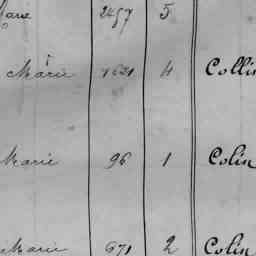 Marie 2457 5
Marie 1631 4 Collin
Marie 96 1 Colin
Marie 671 2 Colin